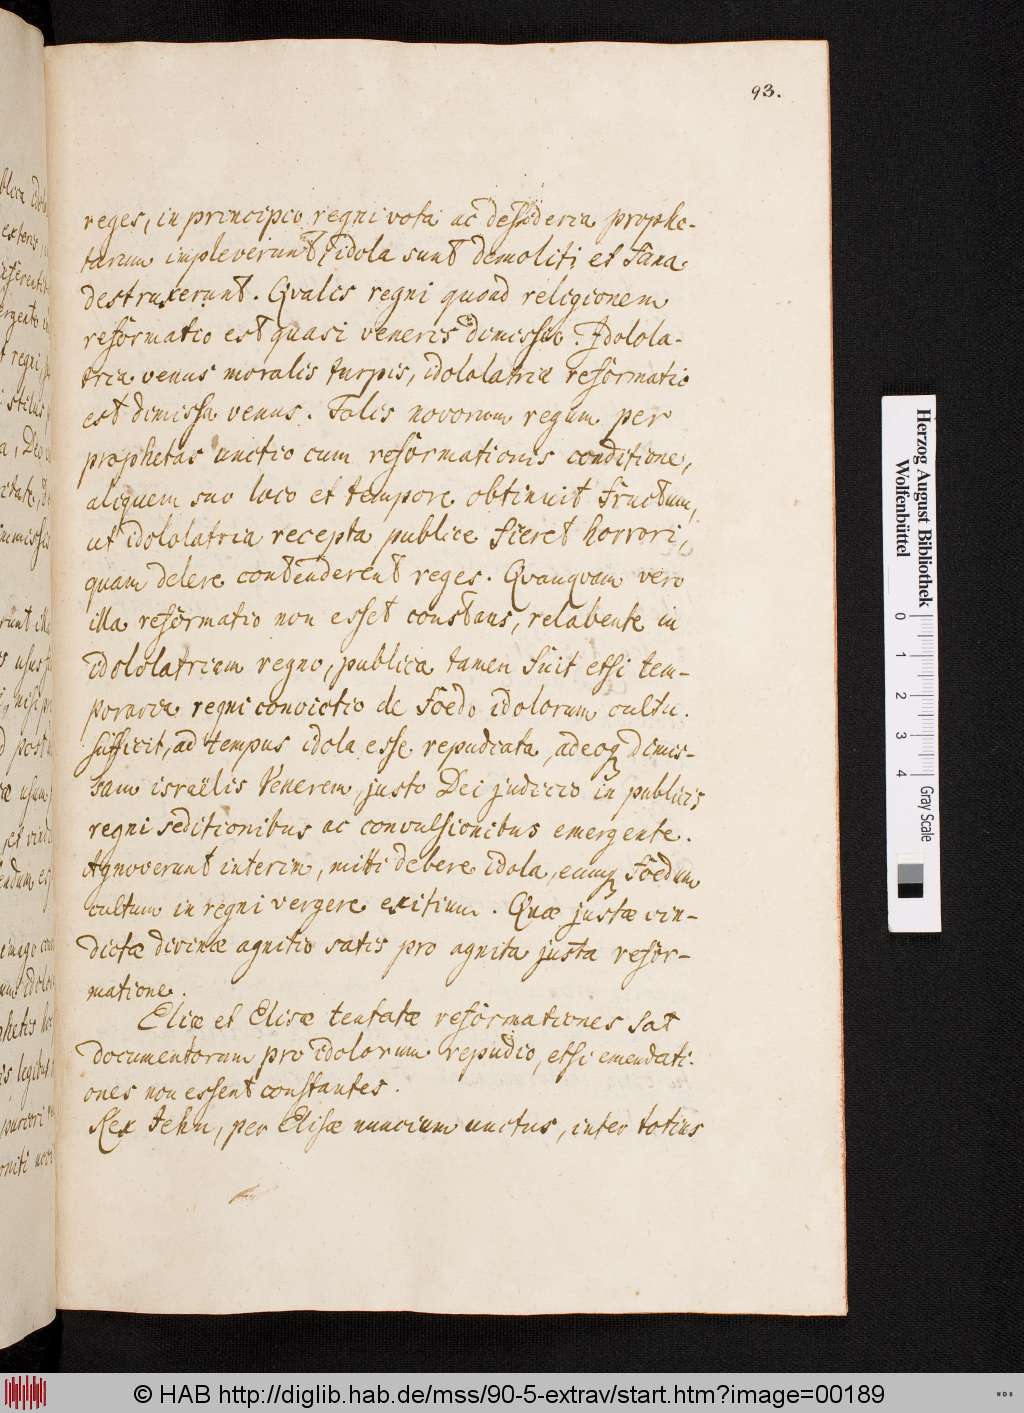 93.
reges, in principio regni vota ac desideria prophe-
tarum impleverunt, idola sunt demoliti et fana
destruxerunt. Qvalis regni quoad religionem
reformatio est quasi veneris dimissio. Idolola-
tria venus moralis turpis, idololatriæ reformatio
est dimissa venus. Talis novorum regum per
prophetas unctio cum reformationis conditione,
aliquem suo loco et tempore obtinuit fructum,
ut idololatria recepta publice fieret horrori,
quam delere contenderent reges. Qvanqvam vero
illa reformatio non esset constans, relabente in
idololatriam regno, publica tamen fuit etsi tem-
poraria regni convictio de foedo idolorum cultu.
sufficit, ad tempus idola esse repudiata, adeoq dimis-
sam israëlis Venerem, justo Dei judicio in publicis
regni seditionibus ac convulsionibus emergente.
Agnoverunt interim, mitti debere idola, eumq foedum
cultum in regni vergere exitium. Quæ justæ vin-
dictæ divinæ agnitio satis pro agnita justa refor-
matione.
Eliæ et Elisæ tentatæ reformationes sat
documentorum pro idolorum repudio, etsi emendati-
ones non essent constantes.
Rex Jehu, per Elisæ nuncium unctus, inter totius
Herzog August Bibliothek
Wolfenbüttel
0 1 2 3 4 Gray Scale
© HAB http://diglib.hab.de/mss/90-5-extrav/start.htm?image=00189